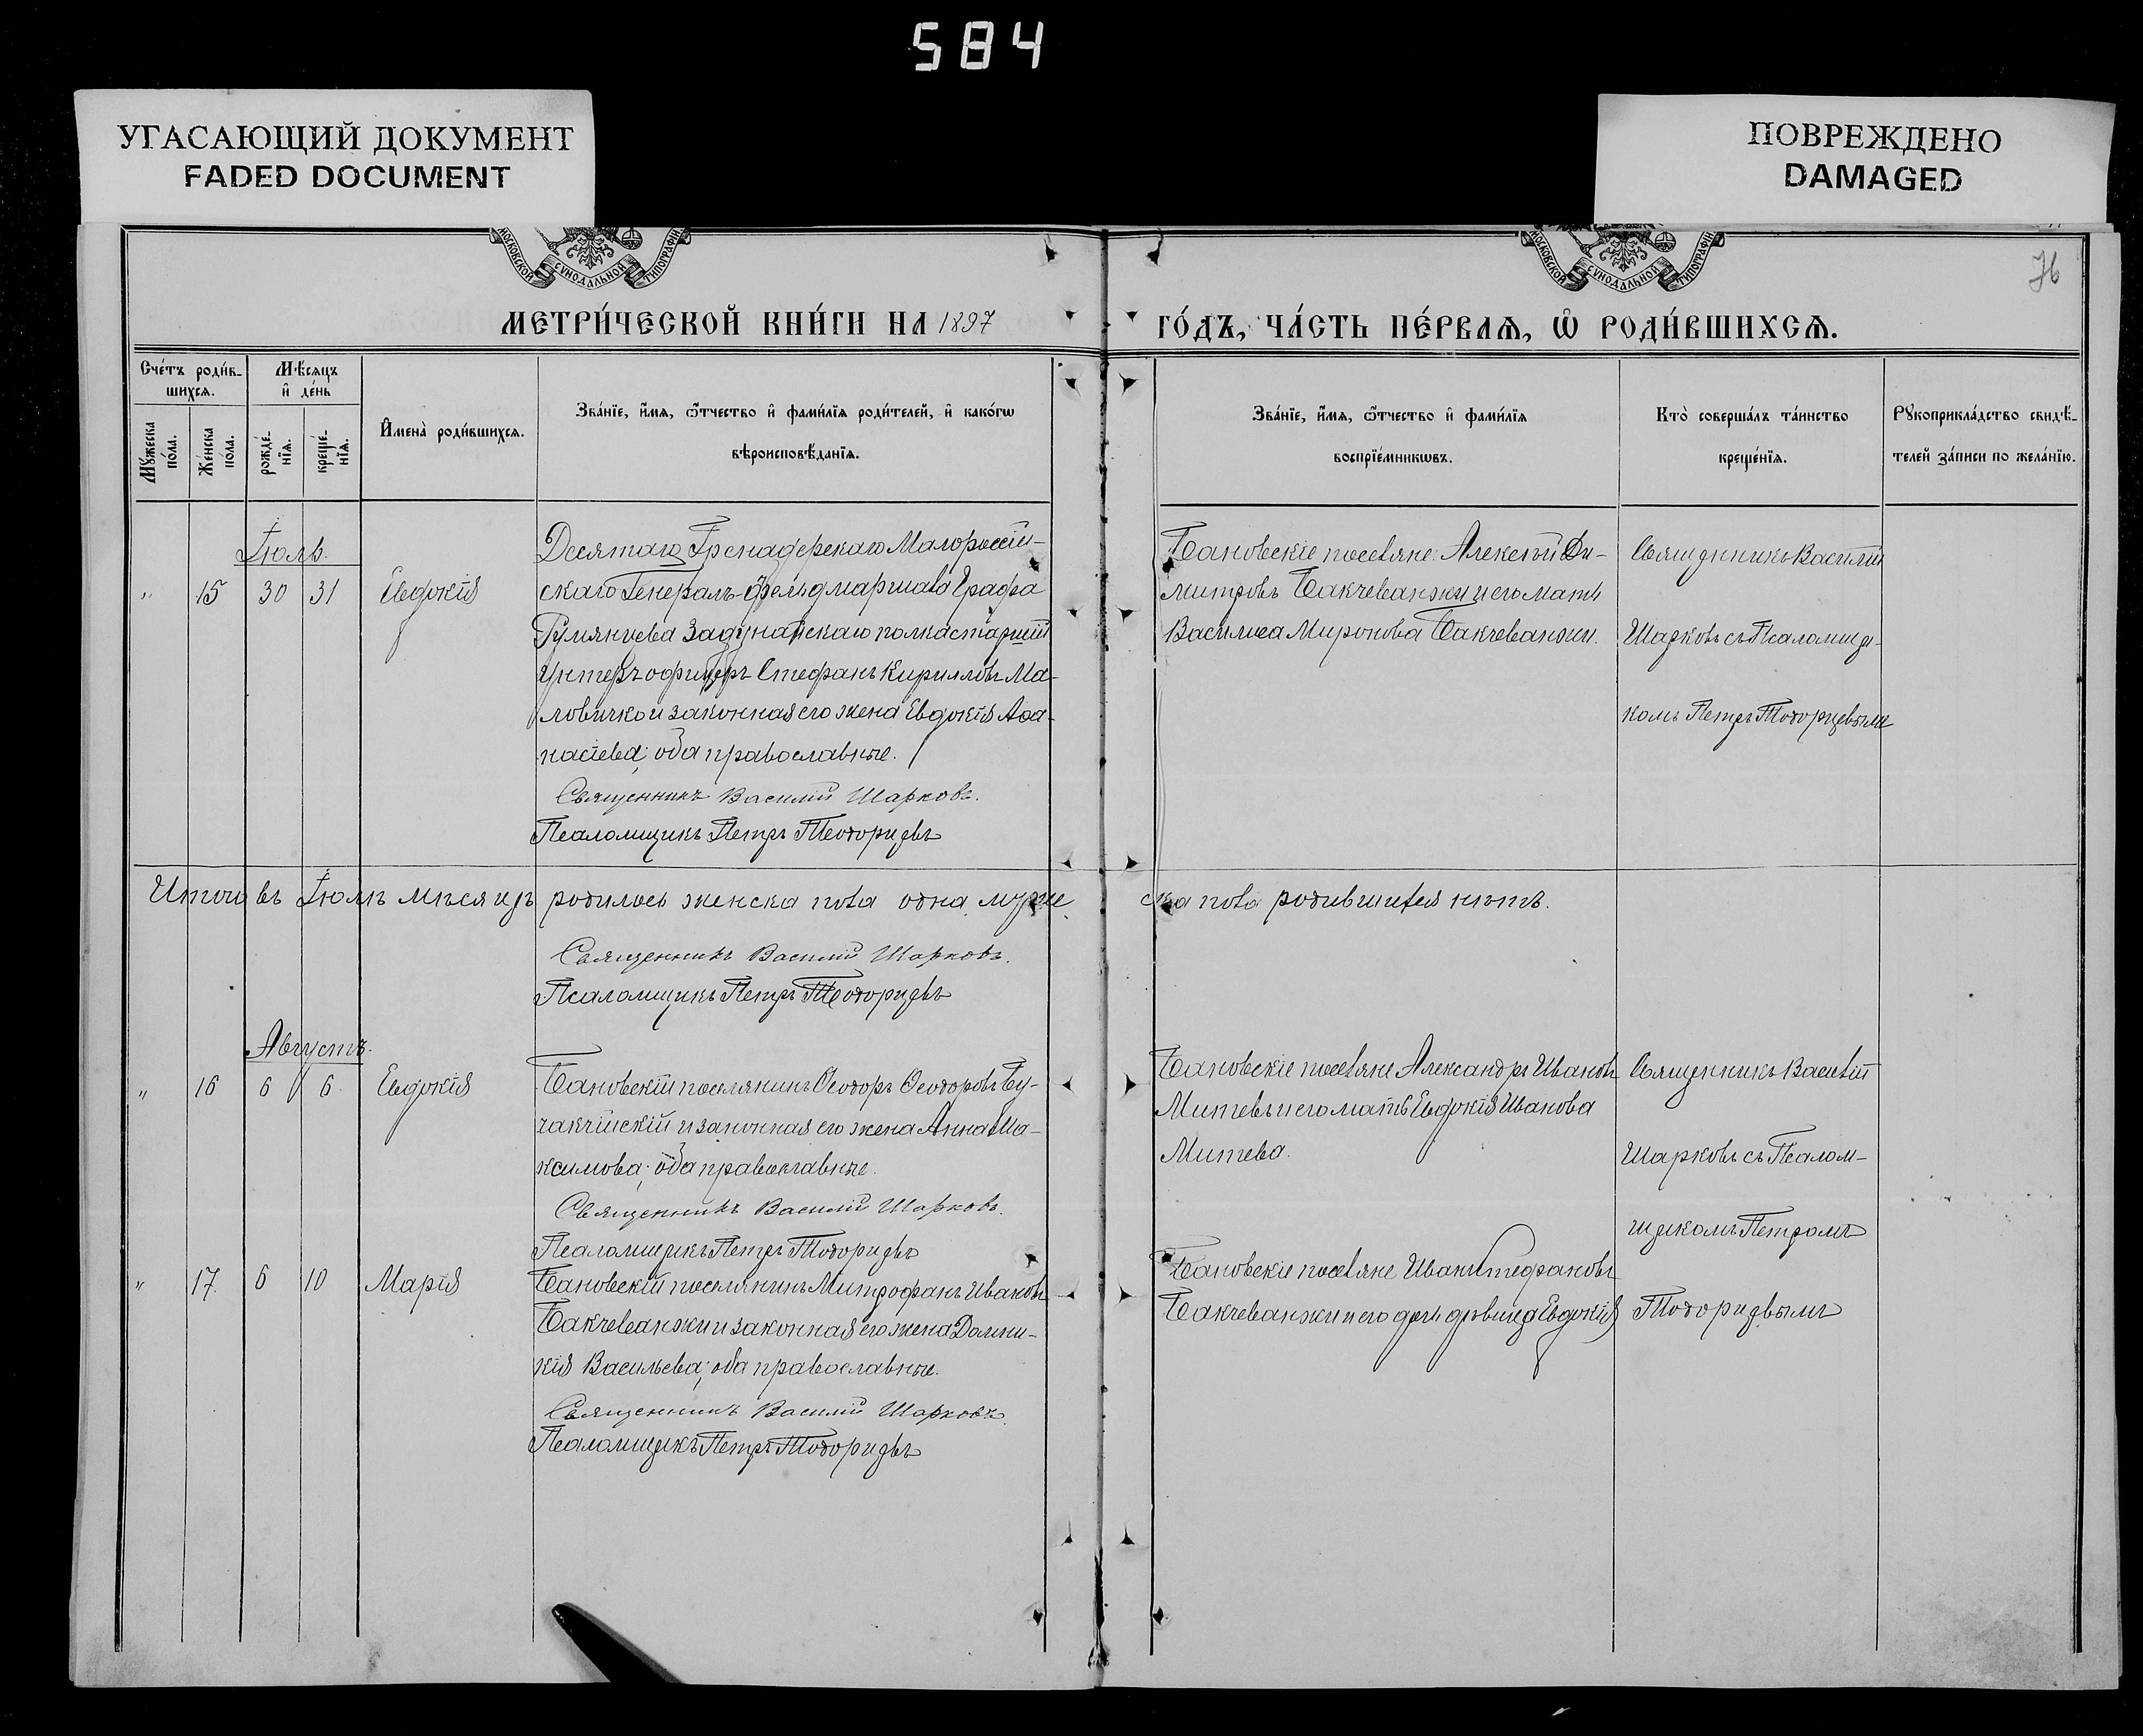 584
УГАСАЮЩИЙ ДОКУМЕНТ
FADED DOCUMENT
ПОВРЕЖДЕНО
DAMAGED
МОСКОВСКОЙ СѴНОДАЛЬНОЙ ТИПОГРАФІИ
МОСКОВСКОЙ СѴНОДАЛЬНОЙ ТИПОГРАФІИ
76
МЕТРИ́ЧЕСКОЙ КНИ́ГИ НА 1897
ГО́ДЪ, ЧА́СТЬ ПЕ́РВАѦ, Ѡ҆ РОДИ́ВШИХСѦ.
Сче́тъ роди́в-
шихсѧ.
Мѣ́сяцъ
и҆ де́нь
Мꙋ́жеска
по́ла.
Же́нска
по́ла.
рожде́-
нїѧ.
креще́-
нїѧ.
И҆мена̀ роди́вшихсѧ.
Зва́нїе, и҆́мѧ, ѻ҆́тчество и҆ фами́лїѧ роди́телей, и҆ како́гѡ
вѣроисповѣ́данїѧ.
Зва́нїе, и҆́мѧ, ѻ҆́тчество и҆ фами́лїѧ
воспрїе́мникѡвъ.
Кто̀ соверша́лъ та́инство
креще́нїѧ.
Рꙋкоприкла́дство свидѣ́-
телей за́писи по жела́нїю.
Іюль.
" 15 30 31 Евдокія
Десятаго Гренадерскаго Малороссій-
скаго Генералъ-Фельдмаршала Графа
Румянцева Задунайскаго полка старшій
Унтеръ офицеръ Стефанъ Кирилловъ Ма-
ловичко и законная его жена Евдокія Аѳа-
насіева; оба православные.
Священникъ Василій Шарковъ.
Псаломщикъ Петръ Теодорицевъ
Бановскіе поселяне: Алексѣй Ди-
митровъ Бакчеванжи и его мать
Василиса Миронова Бакчеванжи.
Священникъ Василій
Шарковъ съ Псаломщи-
комъ Петръ Тодорицевымъ
Итого въ Іюлѣ мѣсяцѣ родилось женска пола одна, муже
ска пола родившихся нѣтъ.
Священникъ Василій Шарковъ.
Псаломщикъ Петръ Теодорицевъ
Августъ.
" 16 6 6 Евдокія
Бановскій поселянинъ Ѳеодоръ Ѳеодоровъ Бу-
чакчійскій и законная его жена Анна Ма-
ксимова; оба православные.
Священникъ Василій Шарковъ.
Псаломщикъ Петръ Тодорицевъ
Бановскіе поселяне Александръ Ивановъ
Митевъ и его мать Евдокія Иванова
Митева.
Священникъ Василій
Шарковъ съ Псалом-
щикомъ Петромъ
Тодорицевымъ
" 17. 6 10 Марія
Бановскій поселянинъ Митрофанъ Ивановъ
Бакчеванжи и законная его жена Домни-
кія Васильева; оба православные.
Священникъ Василій Шарковъ.
Псаломщикъ Петръ Тодорицевъ
Бановскіе поселяне Иванъ Стефановъ
Бакчеванжи и его дочь дѣвица Евдокія